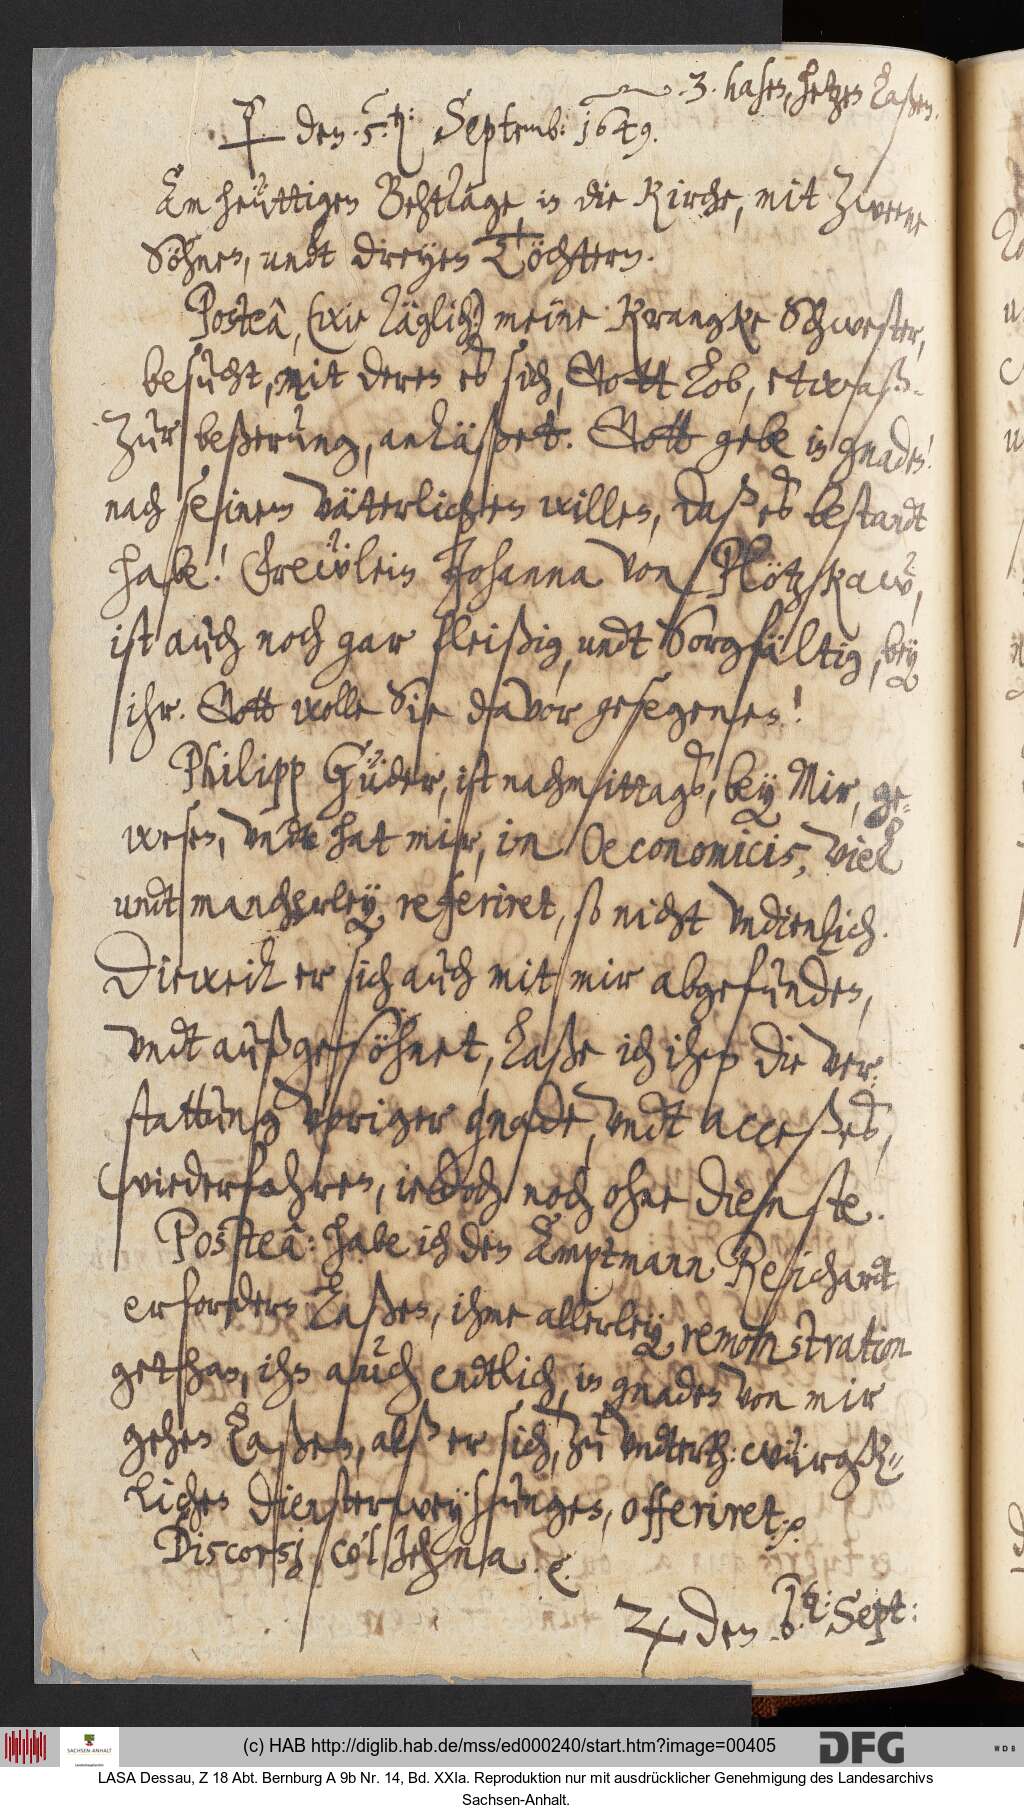 3. hasen, hetzen laßen.
☿ den. 5.ten: Septemb: 1649.
Am heüttigen Behttage, in die Kirche, mit Zweene
Söhnen, undt dreyen Töchtern.
Posteà, (wie täglich) meine Krangke Schwester,
besucht, mit deren es sich, Gott lob, etwaß
zur beßerung, anläßet. Gott gebe in gnaden!
nach seinem Väterlichen willen, daß es bestandt
habe! Frewlein Johanna von Plötzkaw,
ist auch noch gar fleißig, undt Sorgfältig, bey
ihr. Gott wolle Sie davor gesegenen!
Philipp Güder, ist nachmittags, bey Mir, ge-
wesen, undt hat mir, in Oeconomicis, viel
undt mancherley referiret, so nicht vndienlich.
Dieweil er sich auch mit mir abgefunden,
vndt außgesöhnet, laße ich ihm die ver-
stattung voriger gnade, vndt acceßes,
wiederfahren, iedoch noch ohne Dienste.
Posteà: habe ich den Amptmann Reichardt
erfordern laßen, ihme allerley remonstration
gethan, ihn auch endtlich, in gnaden von mir
gehen laßen, alß er sich, zu vndterth: würgk-
lichen Diensterweysungen, offeriret.
Discorsj col Jehna. &.
♃ den 6.ten: Sept:
(c) HAB http://diglib.hab.de/mss/ed000240/start.htm?image=00405
SACHSEN-ANHALT
DFG
WDB
LASA Dessau, Z 18 Abt. Bernburg A 9b Nr. 14, Bd. XXIa. Reproduktion nur mit ausdrücklicher Genehmigung des Landesarchivs
Sachsen-Anhalt.